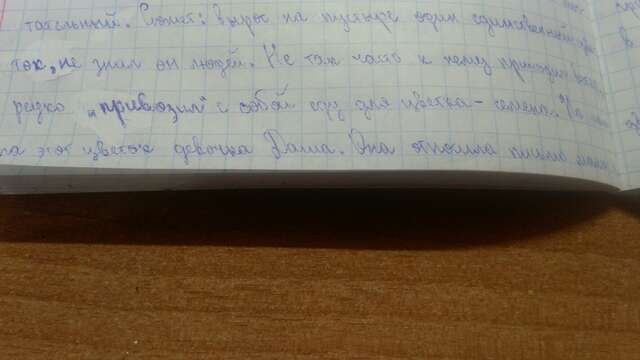 тагельный. Сюжет: вырос на пустыре один единственный
ток, не знал он людей. Не так часто к нему приходил
редко "привозил" с собой еду для цветка - семена.
ла этот цветок девочка Даша. Она относила письмо